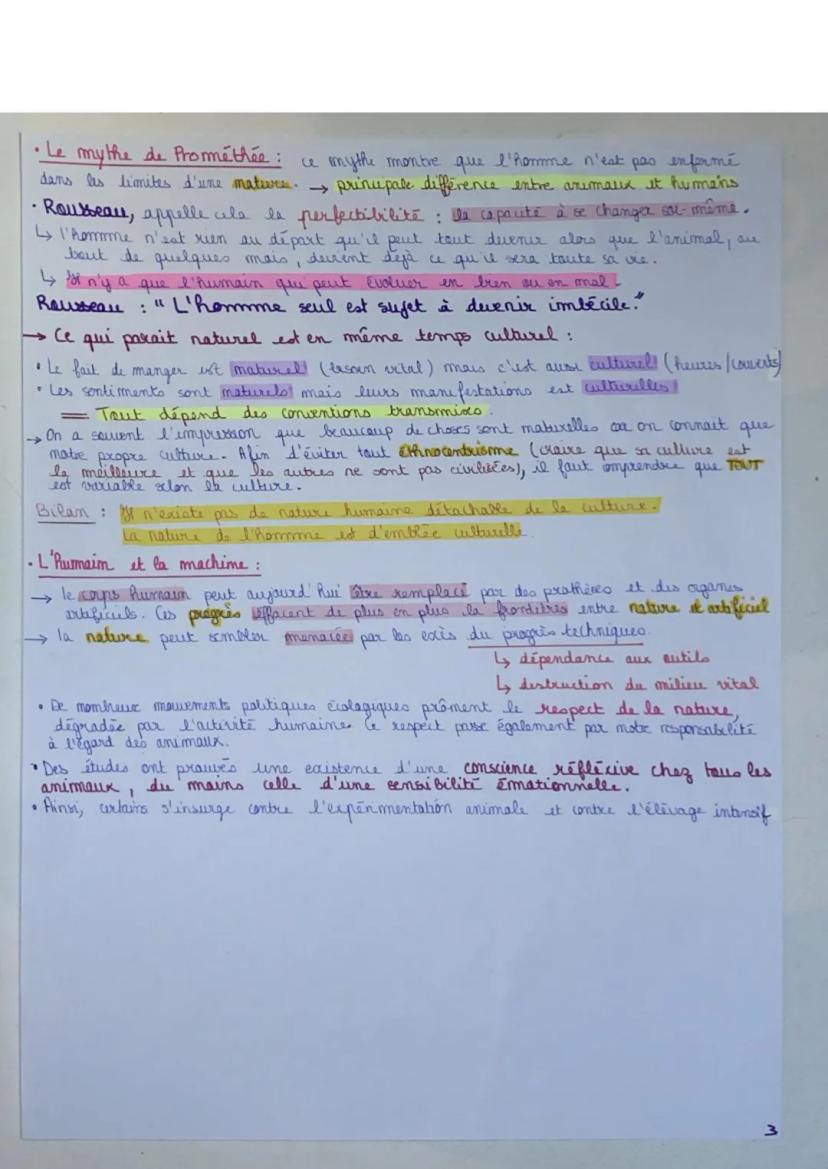 • Le mythe de Prométhée : ce mythe montre que l'homme n'est pas enfermé
dans les limites d'une nature. → principale différence entre animaux et humains
• Rousseau, appelle cela la perfectibilité : la capacité à se changer soi-même.
↳ l'homme n'est rien au départ qu'il peut tout devenir alors que l'animal, au
bout de quelques mois, devient déjà ce qu'il sera toute sa vie.
↳ Il n'y a que l'humain qui peut évoluer en bien ou en mal.
Rousseau : "L'homme seul est sujet à devenir imbécile."
→ Ce qui parait naturel est en même temps culturel :
• Le fait de manger est naturel (besoin vital) mais c'est aussi culturel (heures/couverts)
• Les sentiments sont naturels mais leurs manifestations est culturelles
= Tout dépend des conventions transmises.
→ On a souvent l'impression que beaucoup de choses sont naturelles car on connait que
notre propre culture. Afin d'éviter tout éthnocentrisme (croire que sa culture est
la meilleure et que les autres ne sont pas civilisées), il faut comprendre que TOUT
est variable selon la culture.
Bilan : Il n'existe pas de nature humaine détachable de la culture.
La nature de l'homme est d'emblée culturelle
• L'humain et la machine :
→ le corps humain peut aujourd'hui être remplacé par des prothèses et des organes
artificiels. Ces progrès effacent de plus en plus la frontières entre nature et artificiel
→ la nature peut sembler menacée par les excès du progrès techniques.
↳ dépendance aux outils
↳ destruction du milieu vital
• De nombreux mouvements politiques écologiques prônent le respect de la nature,
dégradée par l'activité humaine. Ce respect passe également par notre responsabilité
à l'égard des animaux.
• Des études ont prouvés une existence d'une conscience réfléxive chez tous les
animaux, du moins celle d'une sensibilité émotionnelle.
• Ainsi, certains s'insurge contre l'expérimentation animale et contre l'élévage intensif
3